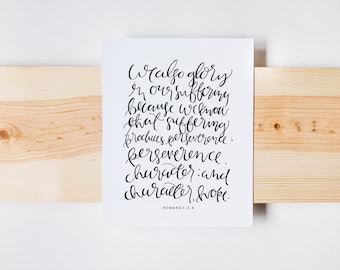 we also glory
in our suffering
because we know
that suffering
produces perseverence:
perseverence,
character: and
character, hope.
ROMANS 5:3-4